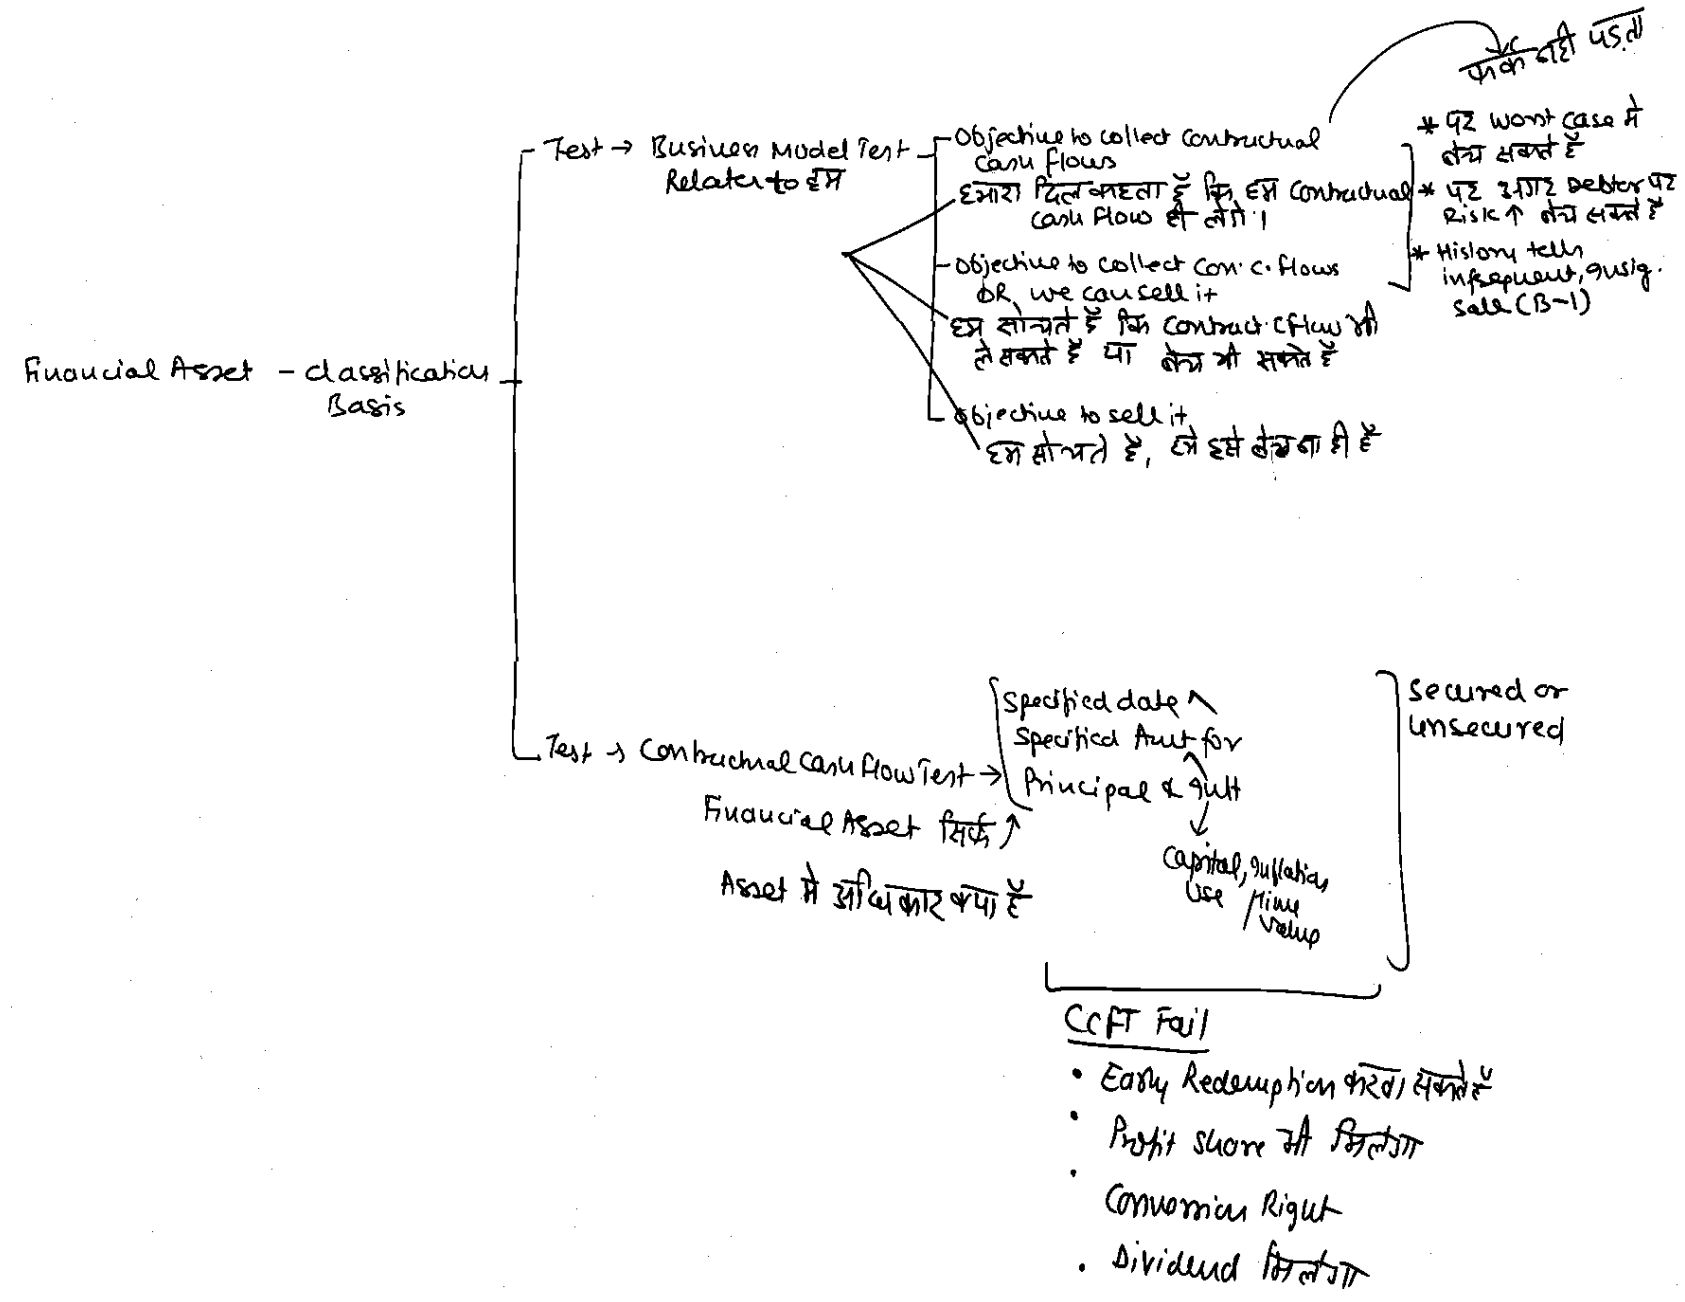 Financial Asset - classification
Basis
Test → Business Model Test
Relates to हम
Objective to collect contractual
cash flows
हमारा दिल कहता है कि हम contractual
cash flow ही लेंगे।
Objective to collect con. c. flows
OR, we can sell it
हम सोचते है कि contract. cflow भी
ले सकते है या बेच भी सकते है
objective to sell it
हम सोचते है, हमे इसे बेचना ही है
फर्क नही पड़ता
* पर worst case मे
बेच सकते है
* पर अगर Debtor पर
Risk ↑ बेच सकते है
* History tells
infrequent, insig.
sale (B-1)
Test → Contractual Cash flow Test →
Financial Asset सिर्फ
Asset मे अधिकार क्या है
Specified date
Specified Amt for
Principal & Intt
Capital, Inflation
use / Time
Value
Secured or
unsecured
CCFT Fail
• Early Redemption करवा सकते है
• Profit share भी मिलेगा
• Conversion Right
• Dividend मिलेगा